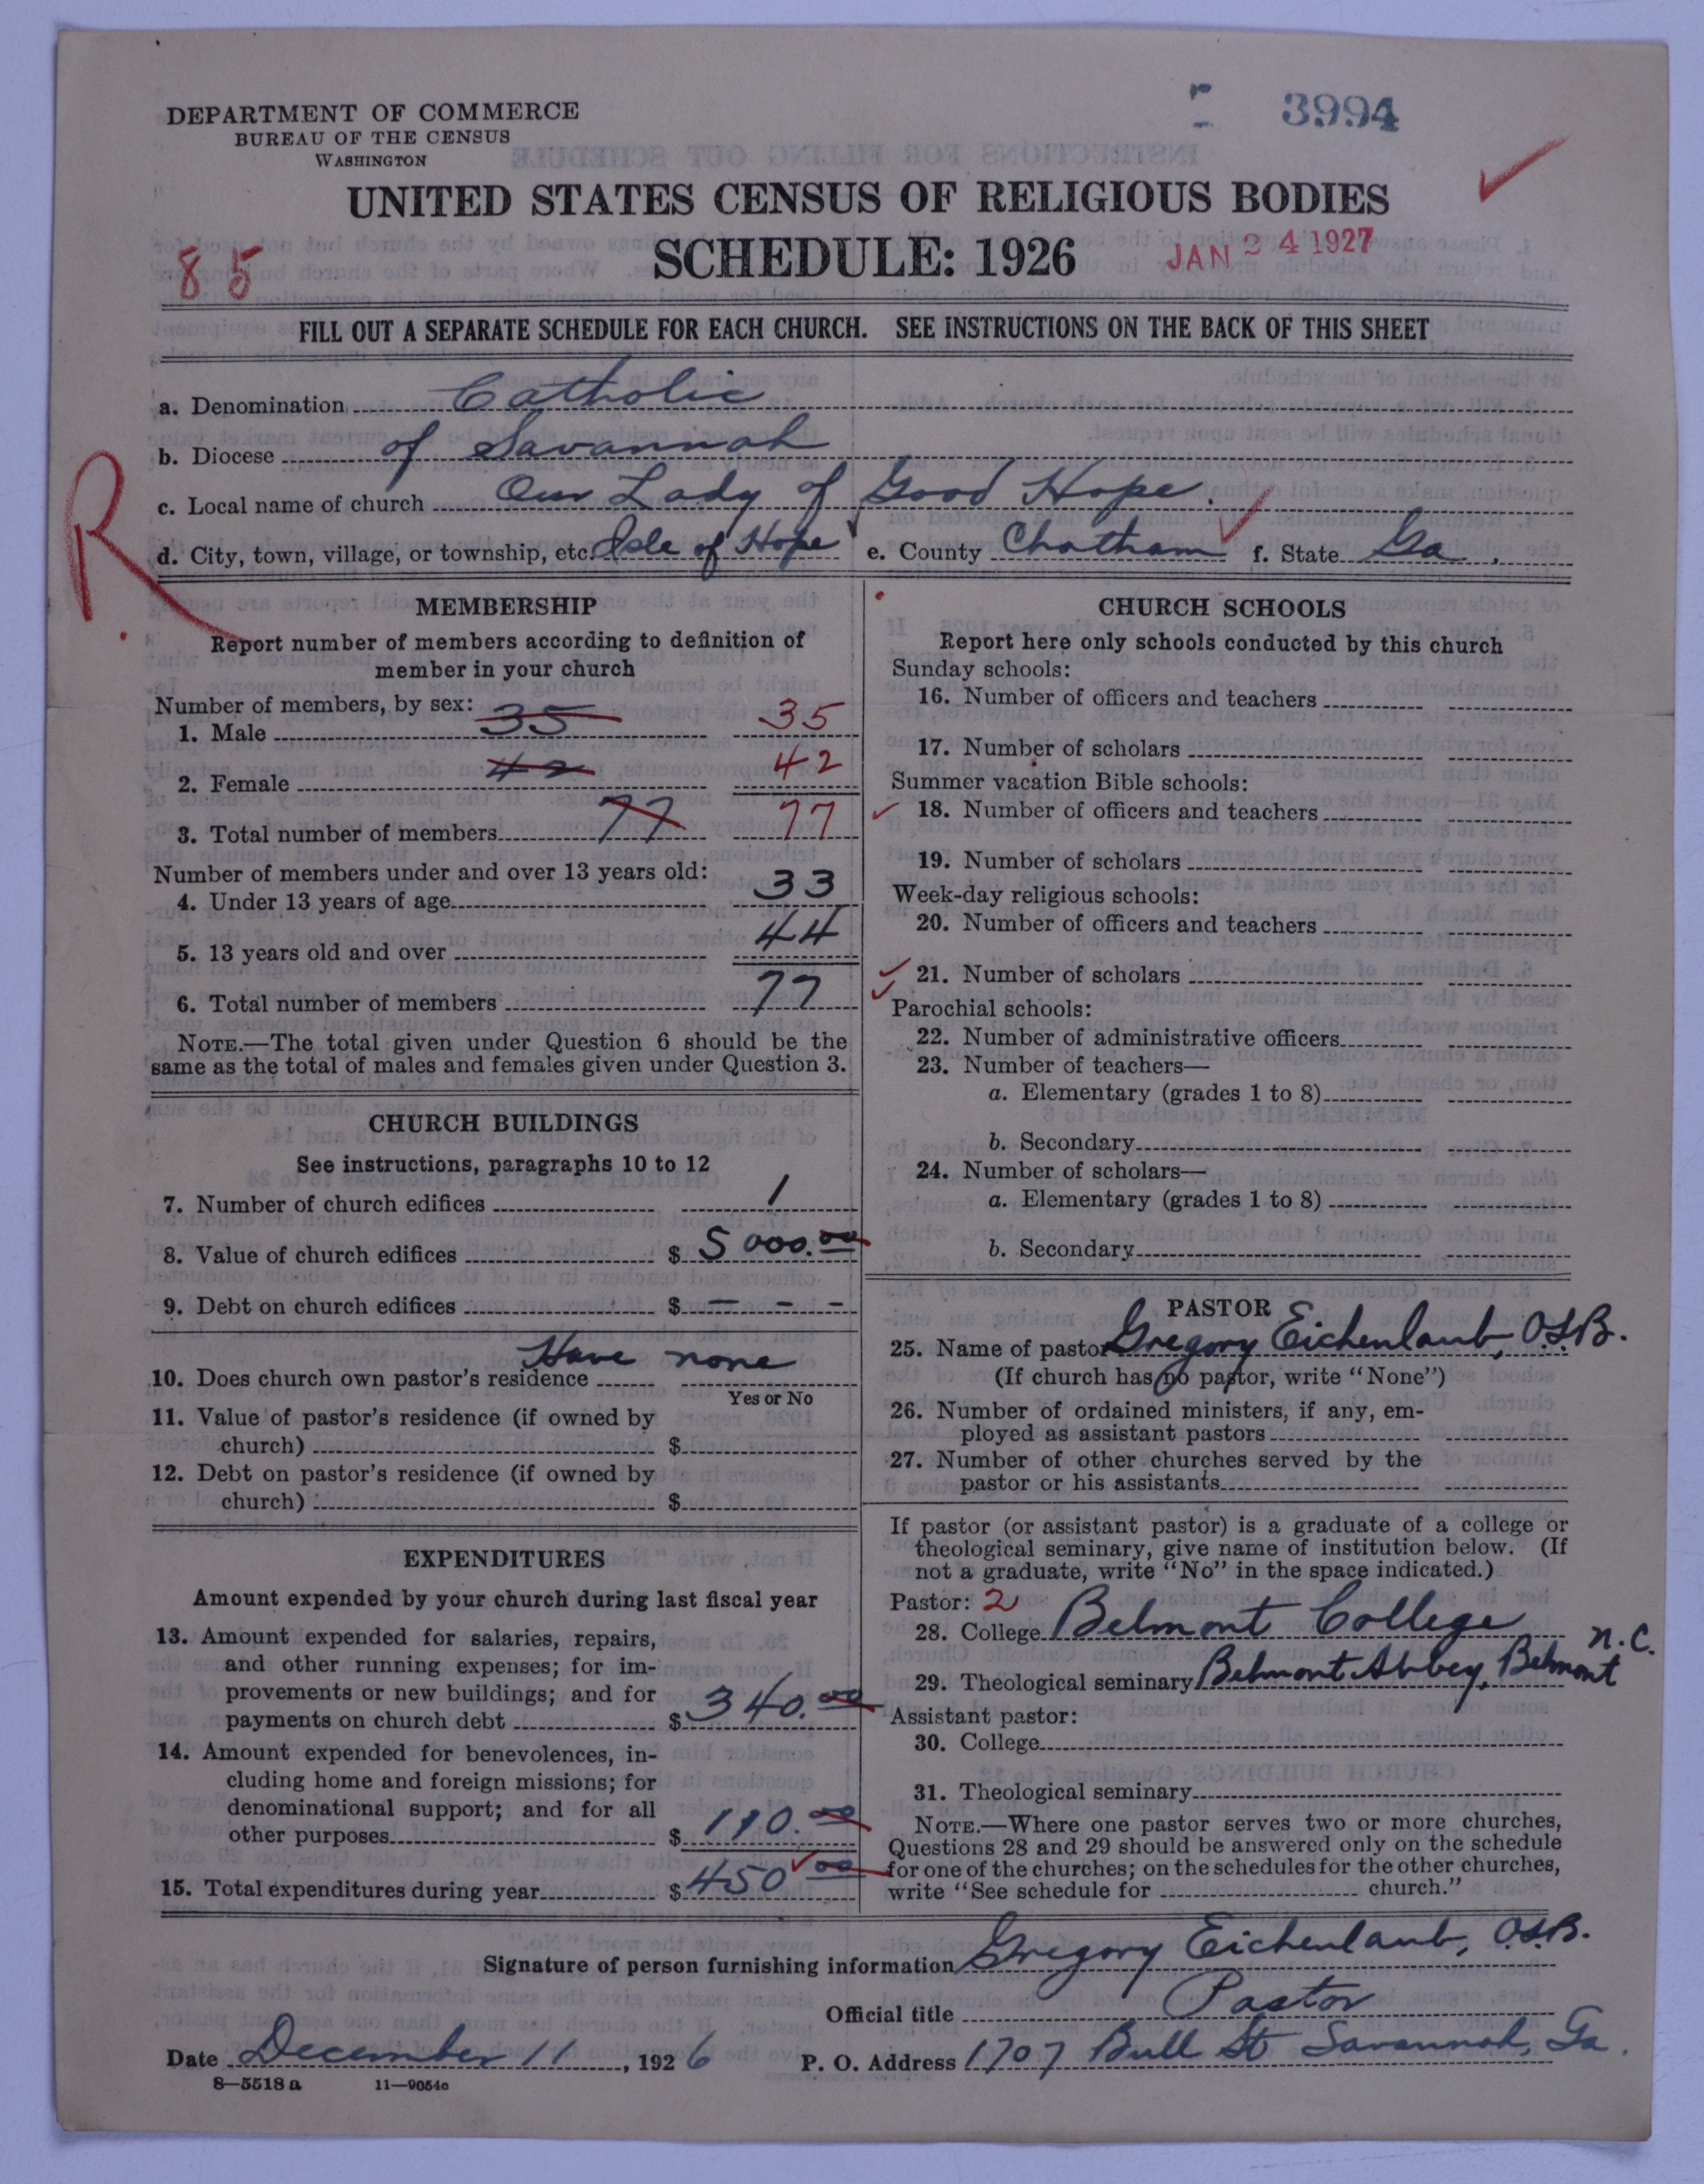 DEPARTMENT OF COMMERCE
BUREAU OF THE CENSUS
WASHINGTON
3994
UNITED STATES CENSUS OF RELIGIOUS BODIES
SCHEDULE: 1926
JAN 24 1927
85
FILL OUT A SEPARATE SCHEDULE FOR EACH CHURCH. SEE INSTRUCTIONS ON THE BACK OF THIS SHEET
a. Denomination Catholic
b. Diocese of Savannah
c. Local name of church Our Lady of Good Hope.
d. City, town, village, or township, etc. Isle of Hope e. County Chatham f. State Ga.
R
MEMBERSHIP
Report number of members according to definition of
member in your church
Number of members, by sex:
1. Male 35 35
2. Female 42 42
3. Total number of members 77 77
Number of members under and over 13 years old:
4. Under 13 years of age 33
5. 13 years old and over 44
6. Total number of members 77
NOTE.—The total given under Question 6 should be the
same as the total of males and females given under Question 3.
CHURCH BUILDINGS
See instructions, paragraphs 10 to 12
7. Number of church edifices 1
8. Value of church edifices $ 5000.00
9. Debt on church edifices $ - - -
10. Does church own pastor's residence Have none
Yes or No
11. Value of pastor's residence (if owned by
church) $
12. Debt on pastor's residence (if owned by
church) $
EXPENDITURES
Amount expended by your church during last fiscal year
13. Amount expended for salaries, repairs,
and other running expenses; for im-
provements or new buildings; and for
payments on church debt $ 340.00
14. Amount expended for benevolences, in-
cluding home and foreign missions; for
denominational support; and for all
other purposes $ 110.00
15. Total expenditures during year $ 450 00
CHURCH SCHOOLS
Report here only schools conducted by this church
Sunday schools:
16. Number of officers and teachers
17. Number of scholars
Summer vacation Bible schools:
18. Number of officers and teachers
19. Number of scholars
Week-day religious schools:
20. Number of officers and teachers
21. Number of scholars
Parochial schools:
22. Number of administrative officers
23. Number of teachers—
a. Elementary (grades 1 to 8)
b. Secondary
24. Number of scholars—
a. Elementary (grades 1 to 8)
b. Secondary
PASTOR
25. Name of pastor Gregory Eichenlaub, O.S.B.
(If church has no pastor, write "None")
26. Number of ordained ministers, if any, em-
ployed as assistant pastors
27. Number of other churches served by the
pastor or his assistants
If pastor (or assistant pastor) is a graduate of a college or
theological seminary, give name of institution below. (If
not a graduate, write "No" in the space indicated.)
Pastor: 2
28. College Belmont College
29. Theological seminary Belmont Abbey, Belmont N.C.
Assistant pastor:
30. College
31. Theological seminary
NOTE.—Where one pastor serves two or more churches,
Questions 28 and 29 should be answered only on the schedule
for one of the churches; on the schedules for the other churches,
write "See schedule for church."
Signature of person furnishing information Gregory Eichenlaub, O.S.B.
Official title Pastor
Date December 11, 1926 P. O. Address 1707 Bull St Savannah, Ga.
8—5518 a 11—9054c